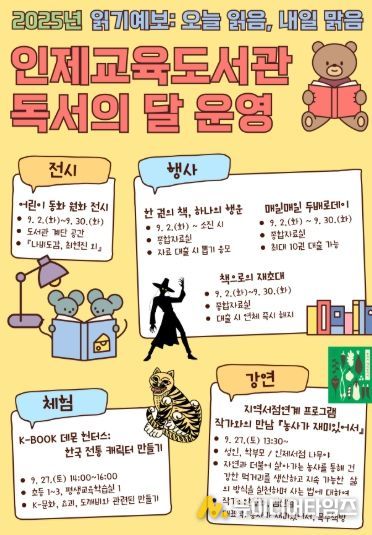 2025년 읽기예보: 오늘 읽음, 내일 맑음
인제교육도서관
독서의 달 운영
전시
어린이 동화 원화 전시
9. 2.(화)~9. 30.(화)
도서관 계단 공간
『나비도감, 최현진 외』
행사
한 권의 책, 하나의 행운
9. 2.(화) ~ 소진 시
종합자료실
자료 대출 시 뽑기 응모
매일매일 두배로데이
9. 2.(화) ~ 9. 30.(화)
종합자료실
최대 10권 대출 가능
책으로의 재초대
9. 2.(화)~9. 30.(화)
종합자료실
대출 시 연체 즉시 해지
체험
K-BOOK 데몬 헌터스:
한국 전통 캐릭터 만들기
9. 27.(토) 14:00~16:00
초등 1~3, 평생교육학습실 1
K-문화, 효괴, 도깨비와 관련된 만들기
강연
지역서점연계 프로그램
작가와의 만남 『농사가 재미있어서』
9. 27.(토) 13:30~
성인, 학부모 / 인제서점 나무이
자연과 더불어 살아가는 농사를 통해 건
강한 먹거리를 생산하고 지속 가능한 삶
의 방식을 실천하며 사는 법에 대하여
재미있어서,